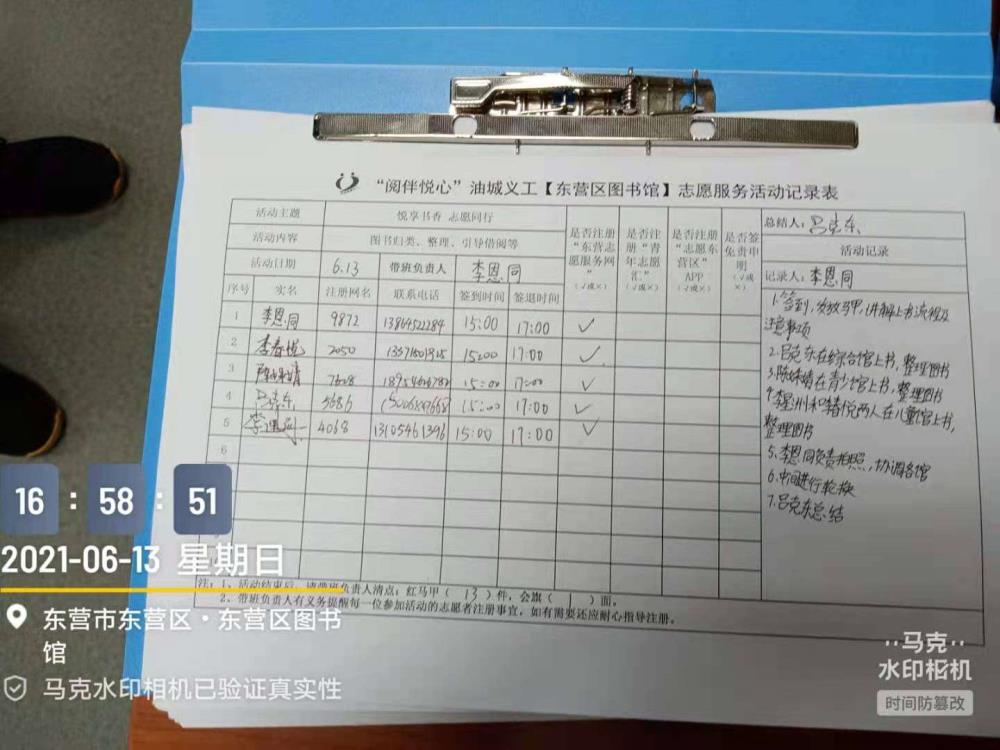 “阅伴悦心”油城义工【东营区图书馆】志愿服务活动记录表
活动主题 悦享书香 志愿同行
活动内容 图书归类、整理、引导借阅等
活动日期 6.13 带班负责人 李恩同
序号 实名 注册网名 联系电话 签到时间 签退时间 是否注册“东营志愿服务网”（√或×） 是否注册“青年志愿汇”（√或×） 是否注册“志愿东营区”APP（√或×） 是否签免责申明（√或×）
1 李恩同 9872 13864522284 15:00 17:00 ✓
2 李春悦 2050 15:00 17:00 ✓
3 7608 15:00 17:00 ✓
4 5686 15:00 17:00 ✓
5 4068 13105461396 15:00 17:00 ✓
6
总结人：吕克东
活动记录
记录人：李恩同
1.签到，发放马甲，讲解上书流程及
注意事项
2.吕克东在综合馆上书，整理图书
3.陈姝婧在青少馆上书，整理图书
4.李星洲和春悦两人在儿童馆上书，
整理图书
5.李恩同负责拍照，协调各馆
6.中间进行轮换
7.吕克东总结
注：1、活动结束后，请带班负责人清点：红马甲（ 13 ）件，会旗（ ）面。
2、带班负责人有义务提醒每一位参加活动的志愿者注册事宜，如有需要还应耐心指导注册。
16:58:51
2021-06-13 星期日
东营市东营区·东营区图书
馆
马克水印相机已验证真实性
马克
水印相机
时间防篡改